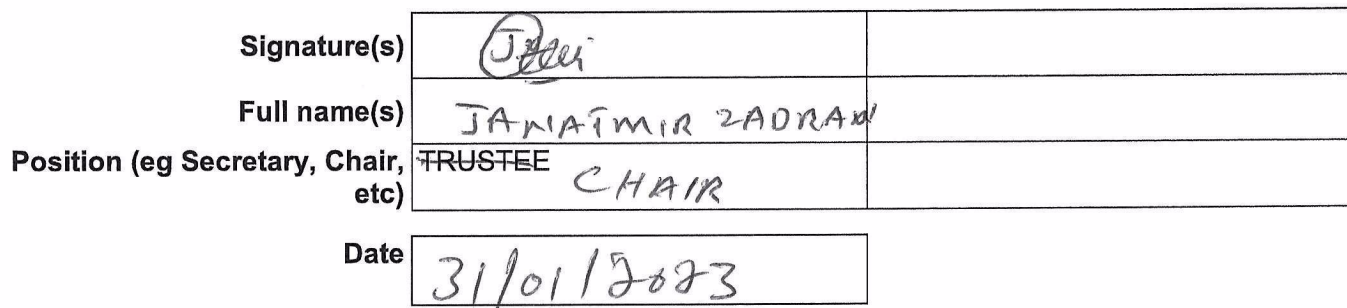 Signature(s)
Full name(s) JANATMIR ZADRAN
Position (eg Secretary, Chair, TRUSTEE
etc) CHAIR
Date 31/01/2023